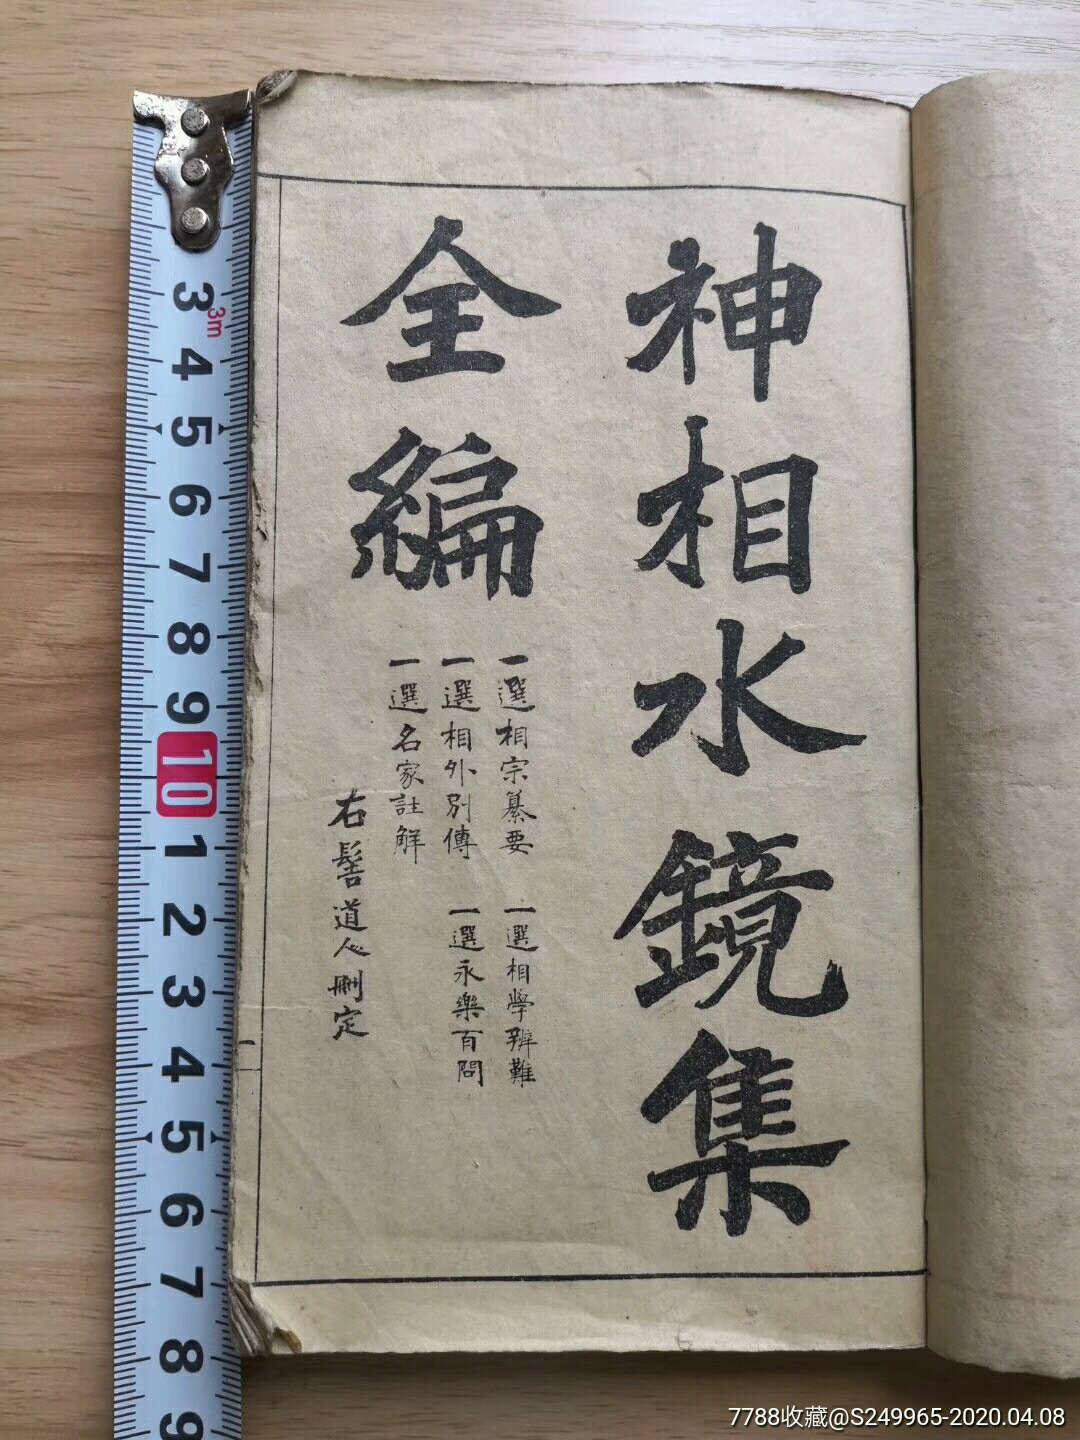 神相水鏡集
全編
一選相宗纂要 一選相學辨難
一選相外別傳 一選永樂百問
一選名家註解
右髻道人刪定
3 4 5 6 7 8 9 10 1 2 3 4 5 6 7 8 9
3m
7788收藏@S249965-2020.04.08